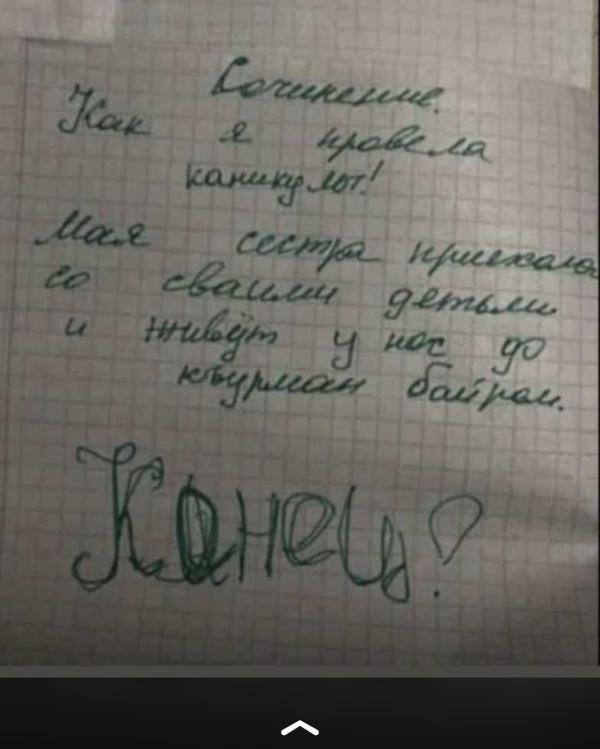 Сочинение.
Как я провела
каникулы!
Мая сестра приехала
со сваими детьми
и живут у нас до
къурман байрам.
Канец!